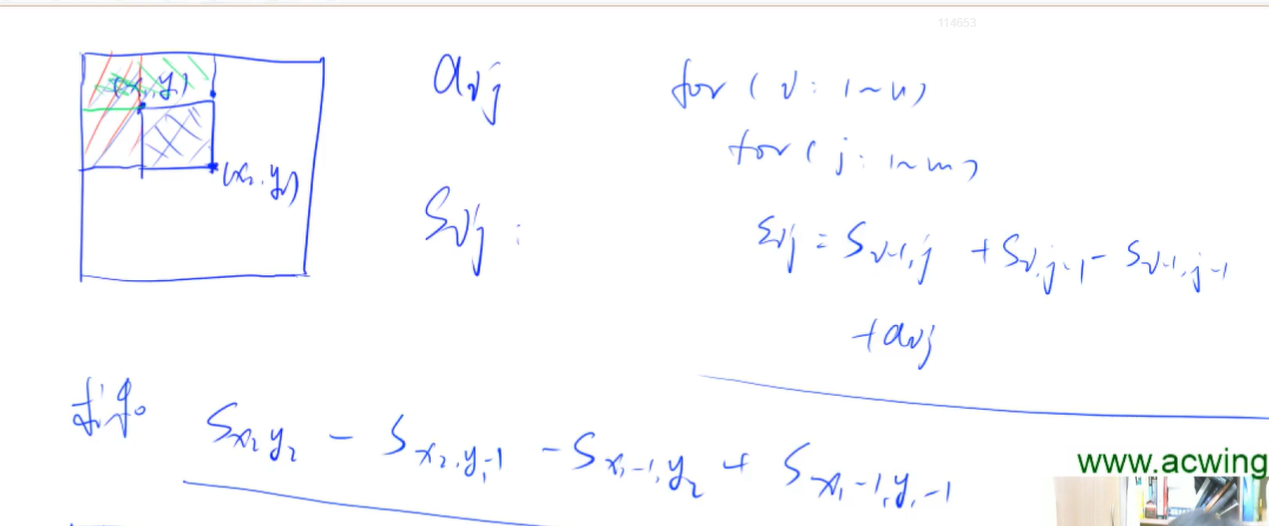 114653
(x₁, y₁)
(x₂, y₂)
aᵢⱼ
for (i: 1~n)
for (j: 1~m)
Sᵢⱼ:
Sᵢⱼ = Sᵢ₋₁,ⱼ + Sᵢ,ⱼ₋₁ - Sᵢ₋₁,ⱼ₋₁
+ aᵢⱼ
Sx₂y₂ - Sx₂,y₁-1 - Sx₁-1,y₂ + Sx₁-1,y₁-1
www.acwing